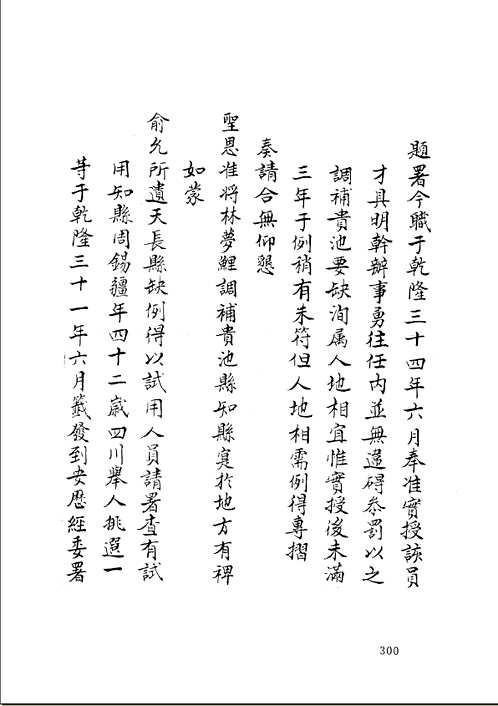 題署今職于乾隆三十四年六月奉准實授該員
才具明幹辦事勇往任内並無違碍叅罰以之
調補貴池要缺洵属人地相宜惟實授後未滿
三年于例稍有未符但人地相需例得專摺
奏請合無仰懇
聖恩准將林夢鯉調補貴池縣知縣寔於地方有裨
如蒙
俞允所遺天長縣缺例得以試用人員請署查有試
用知縣周錫疆年四十二歲四川舉人挑選一
等于乾隆三十一年六月籤發到安歷經委署
300